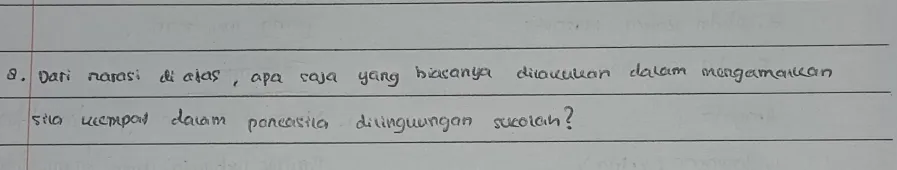 8. Dari narasi di atas, apa saja yang biasanya dilakukan dalam mengamalkan
sila keempat dalam pancasila dilingkungan sekolah?